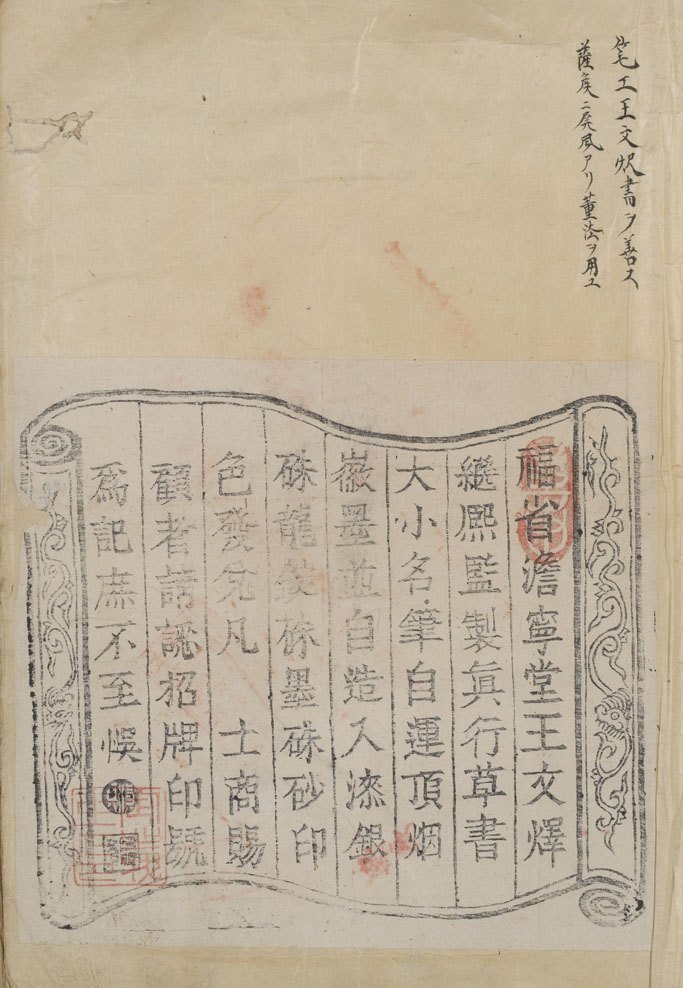 筆工王文㷸書ヲ善ス
薩侯ニ屏風アリ董法ヲ用ユ
福省澹寧堂王文㷸
繼熙監製眞行草書
大小名筆自運頂烟
徽墨並自造入漆銀
硃龍硃墨硃砂印
色發兌凡　士商賜
顧者請認招牌印號
爲記庶不至悮